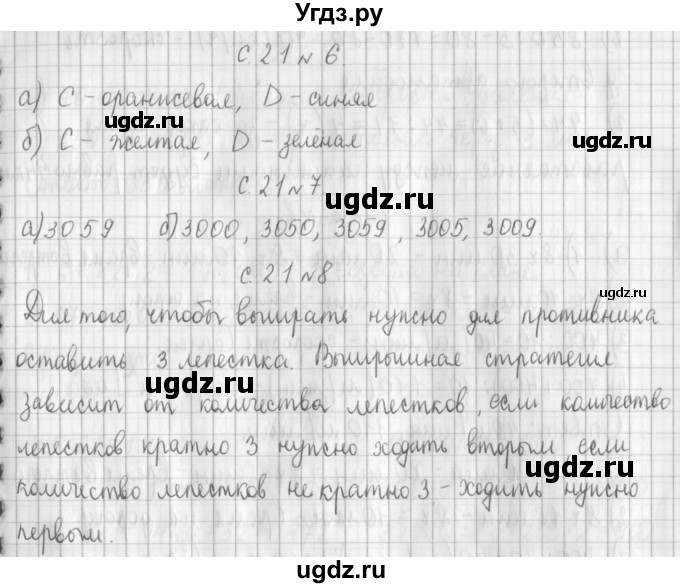 Угдз.ру
С. 21 № 6.
а) С – оранжевая, D – синяя
ugdz.ru
ugdz.ru
б) С – желтая, D – зелёная
С. 21 № 7
ugdz.ru
а) 3059 б) 3000, 3050, 3059, 3005, 3009.
С. 21 № 8
ugdz.ru
Для того, чтобы выиграть нужно для противника
оставить 3 лепестка. Выигрышная стратегия
ugdz.ru
зависит от количества лепестков, если количество
лепестков кратно 3 нужно ходить вторым, если
ugdz.ru
количество лепестков не кратно 3 – ходить нужно
первым.
ugdz.ru
ugdz.ru